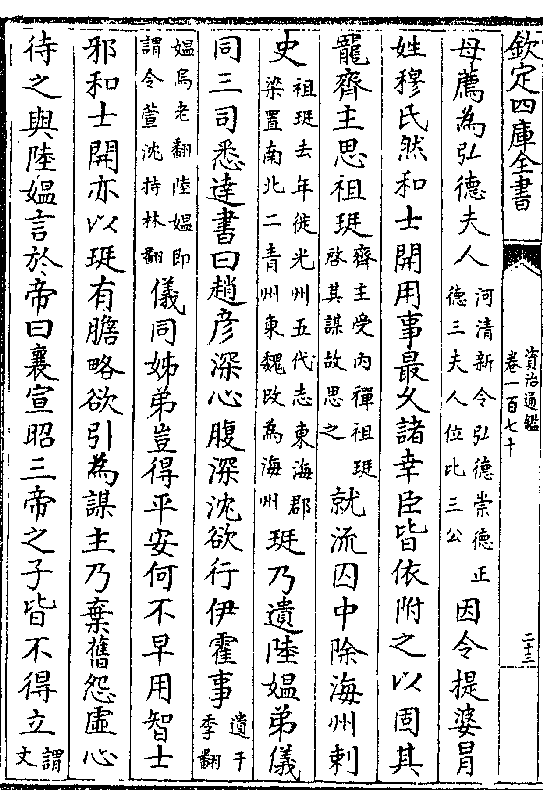 欽定四庫全書
資治通鑑
卷一百七十
二十三
母薦為弘德夫人河清新令弘德崇德正德三夫人位比三公因令提婆冒
姓穆氏然和士開用事最久諸幸臣皆依附之以固其
寵齊主思祖珽齊主受内禪祖珽啓其謀故思之就流囚中除海州刺
史祖珽去年徙光州五代志東海郡梁置南北二青州東魏改為海州珽乃遺陸媪弟儀
同三司悉達書曰趙彦深心腹深沈欲行伊霍事遺于季翻
媪烏老翻陸媪即謂令萱沈持林翻儀同姊弟豈得平安何不早用智士
邪和士開亦以珽有膽略欲引為謀主乃棄舊怨虛心
待之與陸媪言於帝曰襄宣昭三帝之子皆不得立謂文